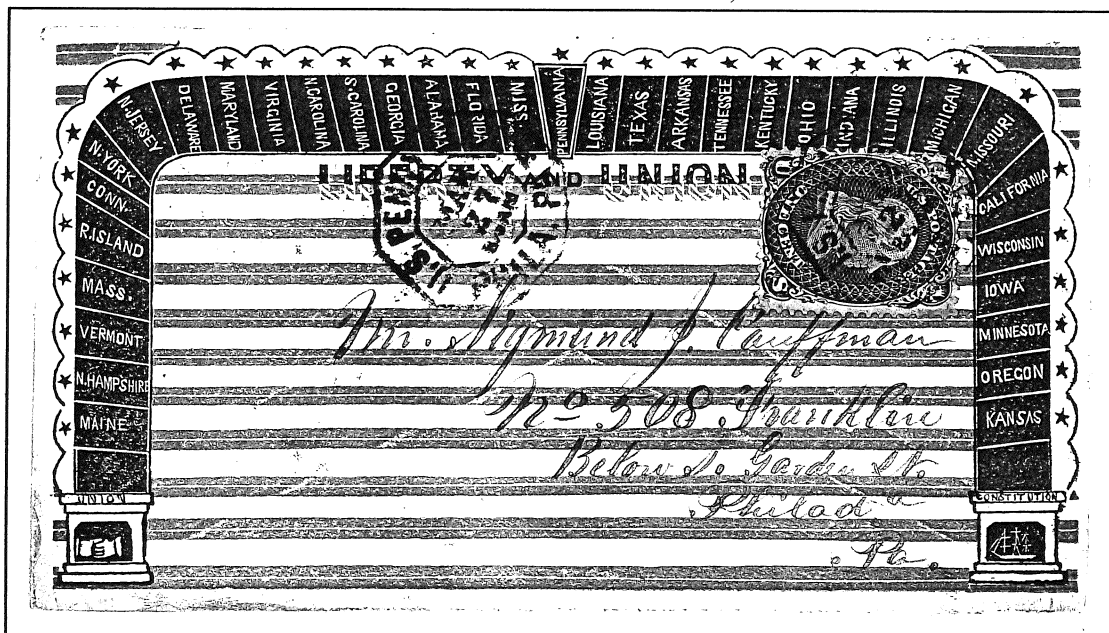 MAINE
N.HAMPSHIRE
VERMONT
MASS.
R.ISLAND
CONN.
N.YORK
N.JERSEY
DELAWARE
MARYLAND
VIRGINIA
N.CAROLINA
S.CAROLINA
GEORGIA
ALABAMA
FLORIDA
MISS.
PENNSYLVANIA
LOUISIANA
TEXAS
ARKANSAS
TENNESSEE
KENTUCKY
OHIO
INDIANA
ILLINOIS
MICHIGAN
MISSOURI
CALIFORNIA
WISCONSIN
IOWA
MINNESOTA
OREGON
KANSAS
LIBERTY AND UNION
U.S. PENN
MAR
27
Mr. Sigmund J. Kauffman
No 508 Franklin
Below S. Garden St.
Philada
Pa.
UNION
CONSTITUTION